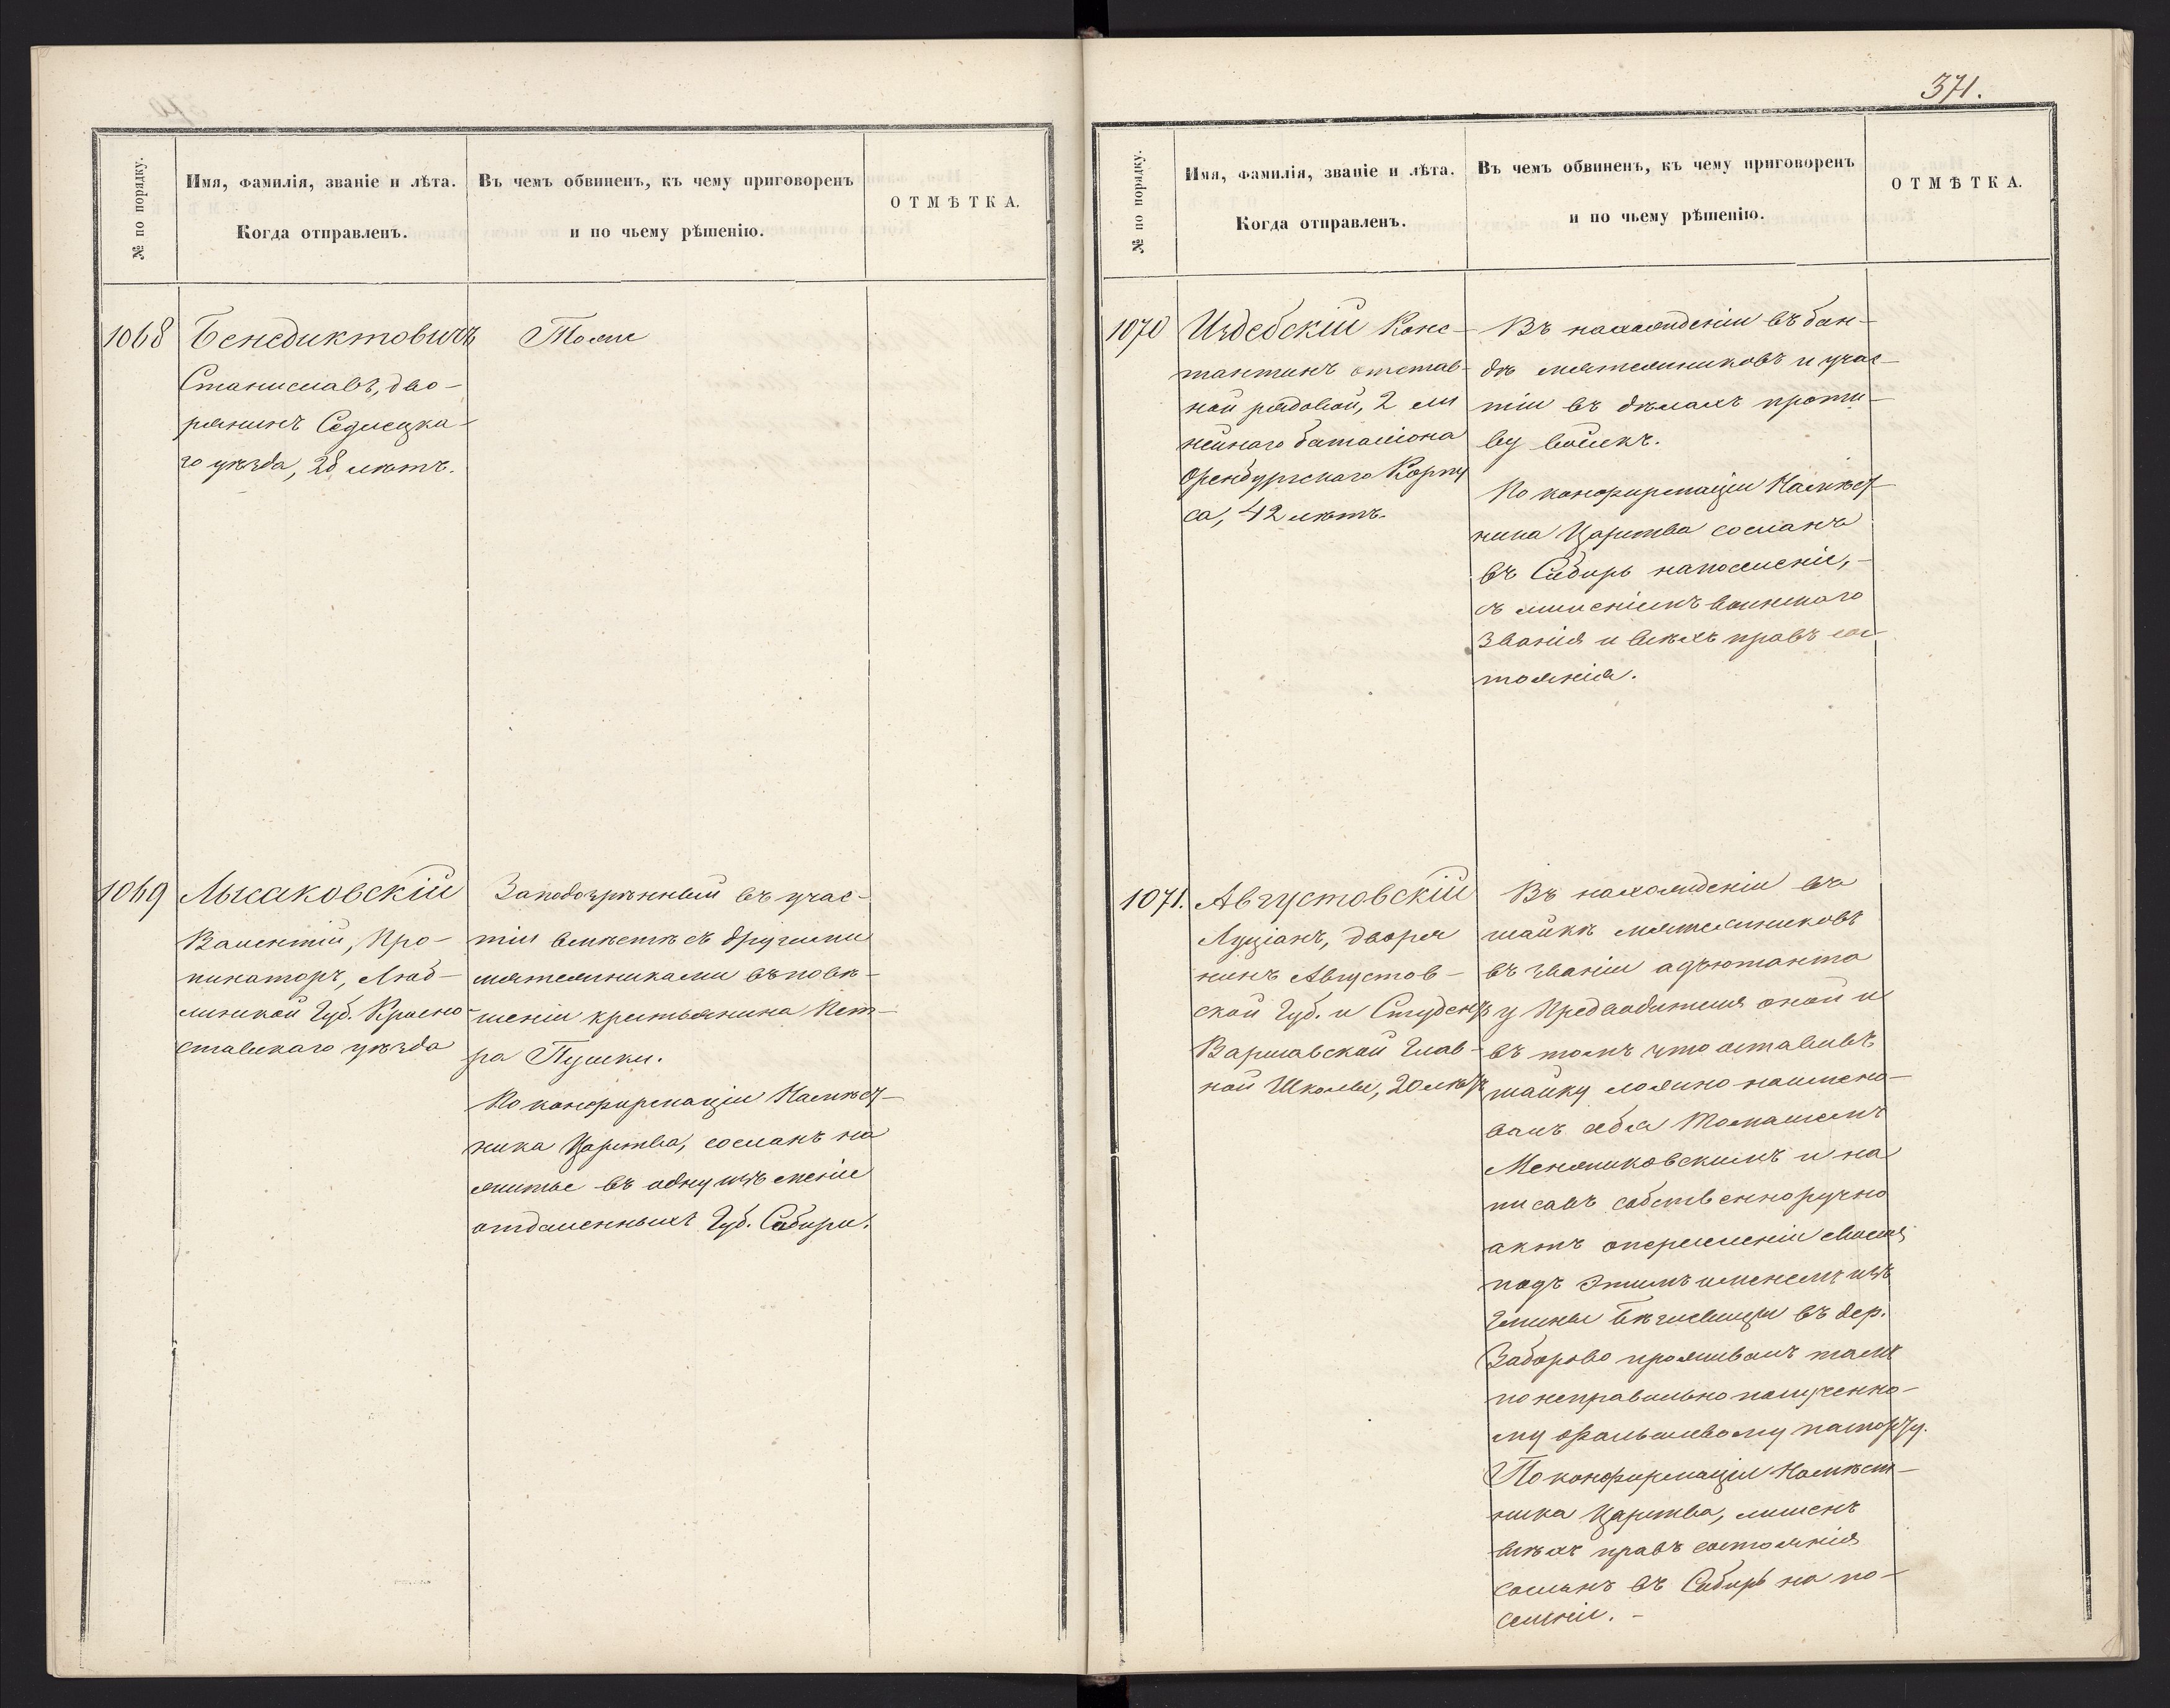 № по порядку.
Имя, фамилія, званіе и лѣта.
Когда отправленъ.
Въ чемъ обвиненъ, къ чему приговоренъ
и по чьему рѣшенію.
ОТМѢТКА.
1068
Бенедиктовичъ
Станиславъ, дво-
рянинъ Седлецка-
го уѣзда, 28 лѣтъ.
Тоже
1069
Лысаковскій
Валентій, Про-
пинаторъ, Люб-
линской Губ. Красно-
ставскаго уѣзда
Заподозрѣнный въ учас-
тіи вмѣстѣ съ другими
мятежниками въ повѣ-
шеніи крестьянина Пет-
ра Пушки.
По конфирмаціи Намѣст-
ника Царства, сосланъ на
житье въ одну изъ менѣе
отдаленныхъ Губ. Сибири.
371.
№ по порядку.
Имя, фамилія, званіе и лѣта.
Когда отправленъ.
Въ чемъ обвиненъ, къ чему приговоренъ
и по чьему рѣшенію.
ОТМѢТКА.
1070
Издебскій Конс-
тантинъ отстав-
ной рядовой, 2 ли
нейнаго баталіона
Оренбургскаго Корпу
са, 42 лѣтъ.
Въ нахожденіи въ бан-
дѣ мятежниковъ и учас-
тіи въ дѣлахъ проти-
ву войскъ.
По конфирмаціи Намѣст-
ника Царства сосланъ
въ Сибирь на поселеніе,-
съ лишеніемъ воинскаго
званія и всѣхъ правъ сос
тоянія.
1071.
Августовскій
Луціанъ, дворя
нинъ Августов-
ской Губ. и Студентъ
Варшавской Глав-
ной Школы, 20 лѣтъ
Въ нахожденіи въ
шайкѣ мятежниковъ
въ званіи адъютанта
у Предводителя оной и
въ томъ что оставивъ
шайку ложно наимено-
валъ себя Томашемъ
Меньшиковскимъ и на
писавъ собственноручно
актъ о переселеніи своемъ
подъ этимъ именемъ изъ
Гмины въ дер.
Заборово проживалъ тамъ
по неправильно полученно-
му фальшивому паспорту.
По конфирмаціи Намѣст-
ника Царства, лишенъ
всѣхъ правъ состоянія
сосланъ въ Сибирь на по-
селеніе. -